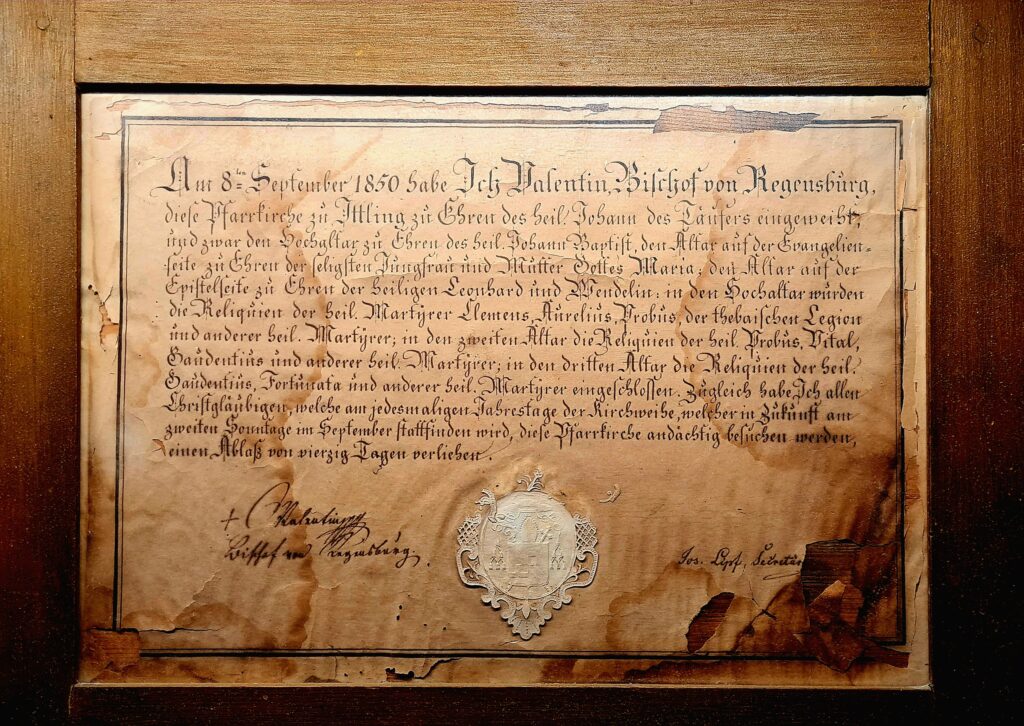 Am 8ten September 1850 habe Ich Valentin, Bischof von Regensburg,
diese Pfarrkirche zu Ittling zu Ehren des heil. Johann des Täufers eingeweiht,
und zwar den Hochaltar zu Ehren des heil. Johann Baptist, den Altar auf der Evangelien-
seite zu Ehren der seligsten Jungfrau und Mutter Gottes Maria; den Altar auf der
Epistelseite zu Ehren der heiligen Leonhard und Wendelin: in den Hochaltar wurden
die Reliquien der heil. Martyrer Clemens, Aurelius, Probus der thebaischen Legion
und anderer heil. Martyrer; in den zweiten Altar die Reliquien der heil. Probus, Vital,
Gaudentius und anderer heil. Martyrer; in den dritten Altar die Reliquien der heil.
Gaudentius, Fortunata und anderer heil. Martyrer eingeschlossen. Zugleich habe Ich allen
Christgläubigen, welche am jedesmaligen Jahrestage der Kirchweihe, welcher in Zukunft am
zweiten Sonntage im September stattfinden wird, diese Pfarrkirche andächtig besuchen werden,
einen Ablaß von vierzig Tagen verliehen.
+ Valentin
Bischof von Regensburg.
Jos. Lipf, Secretär